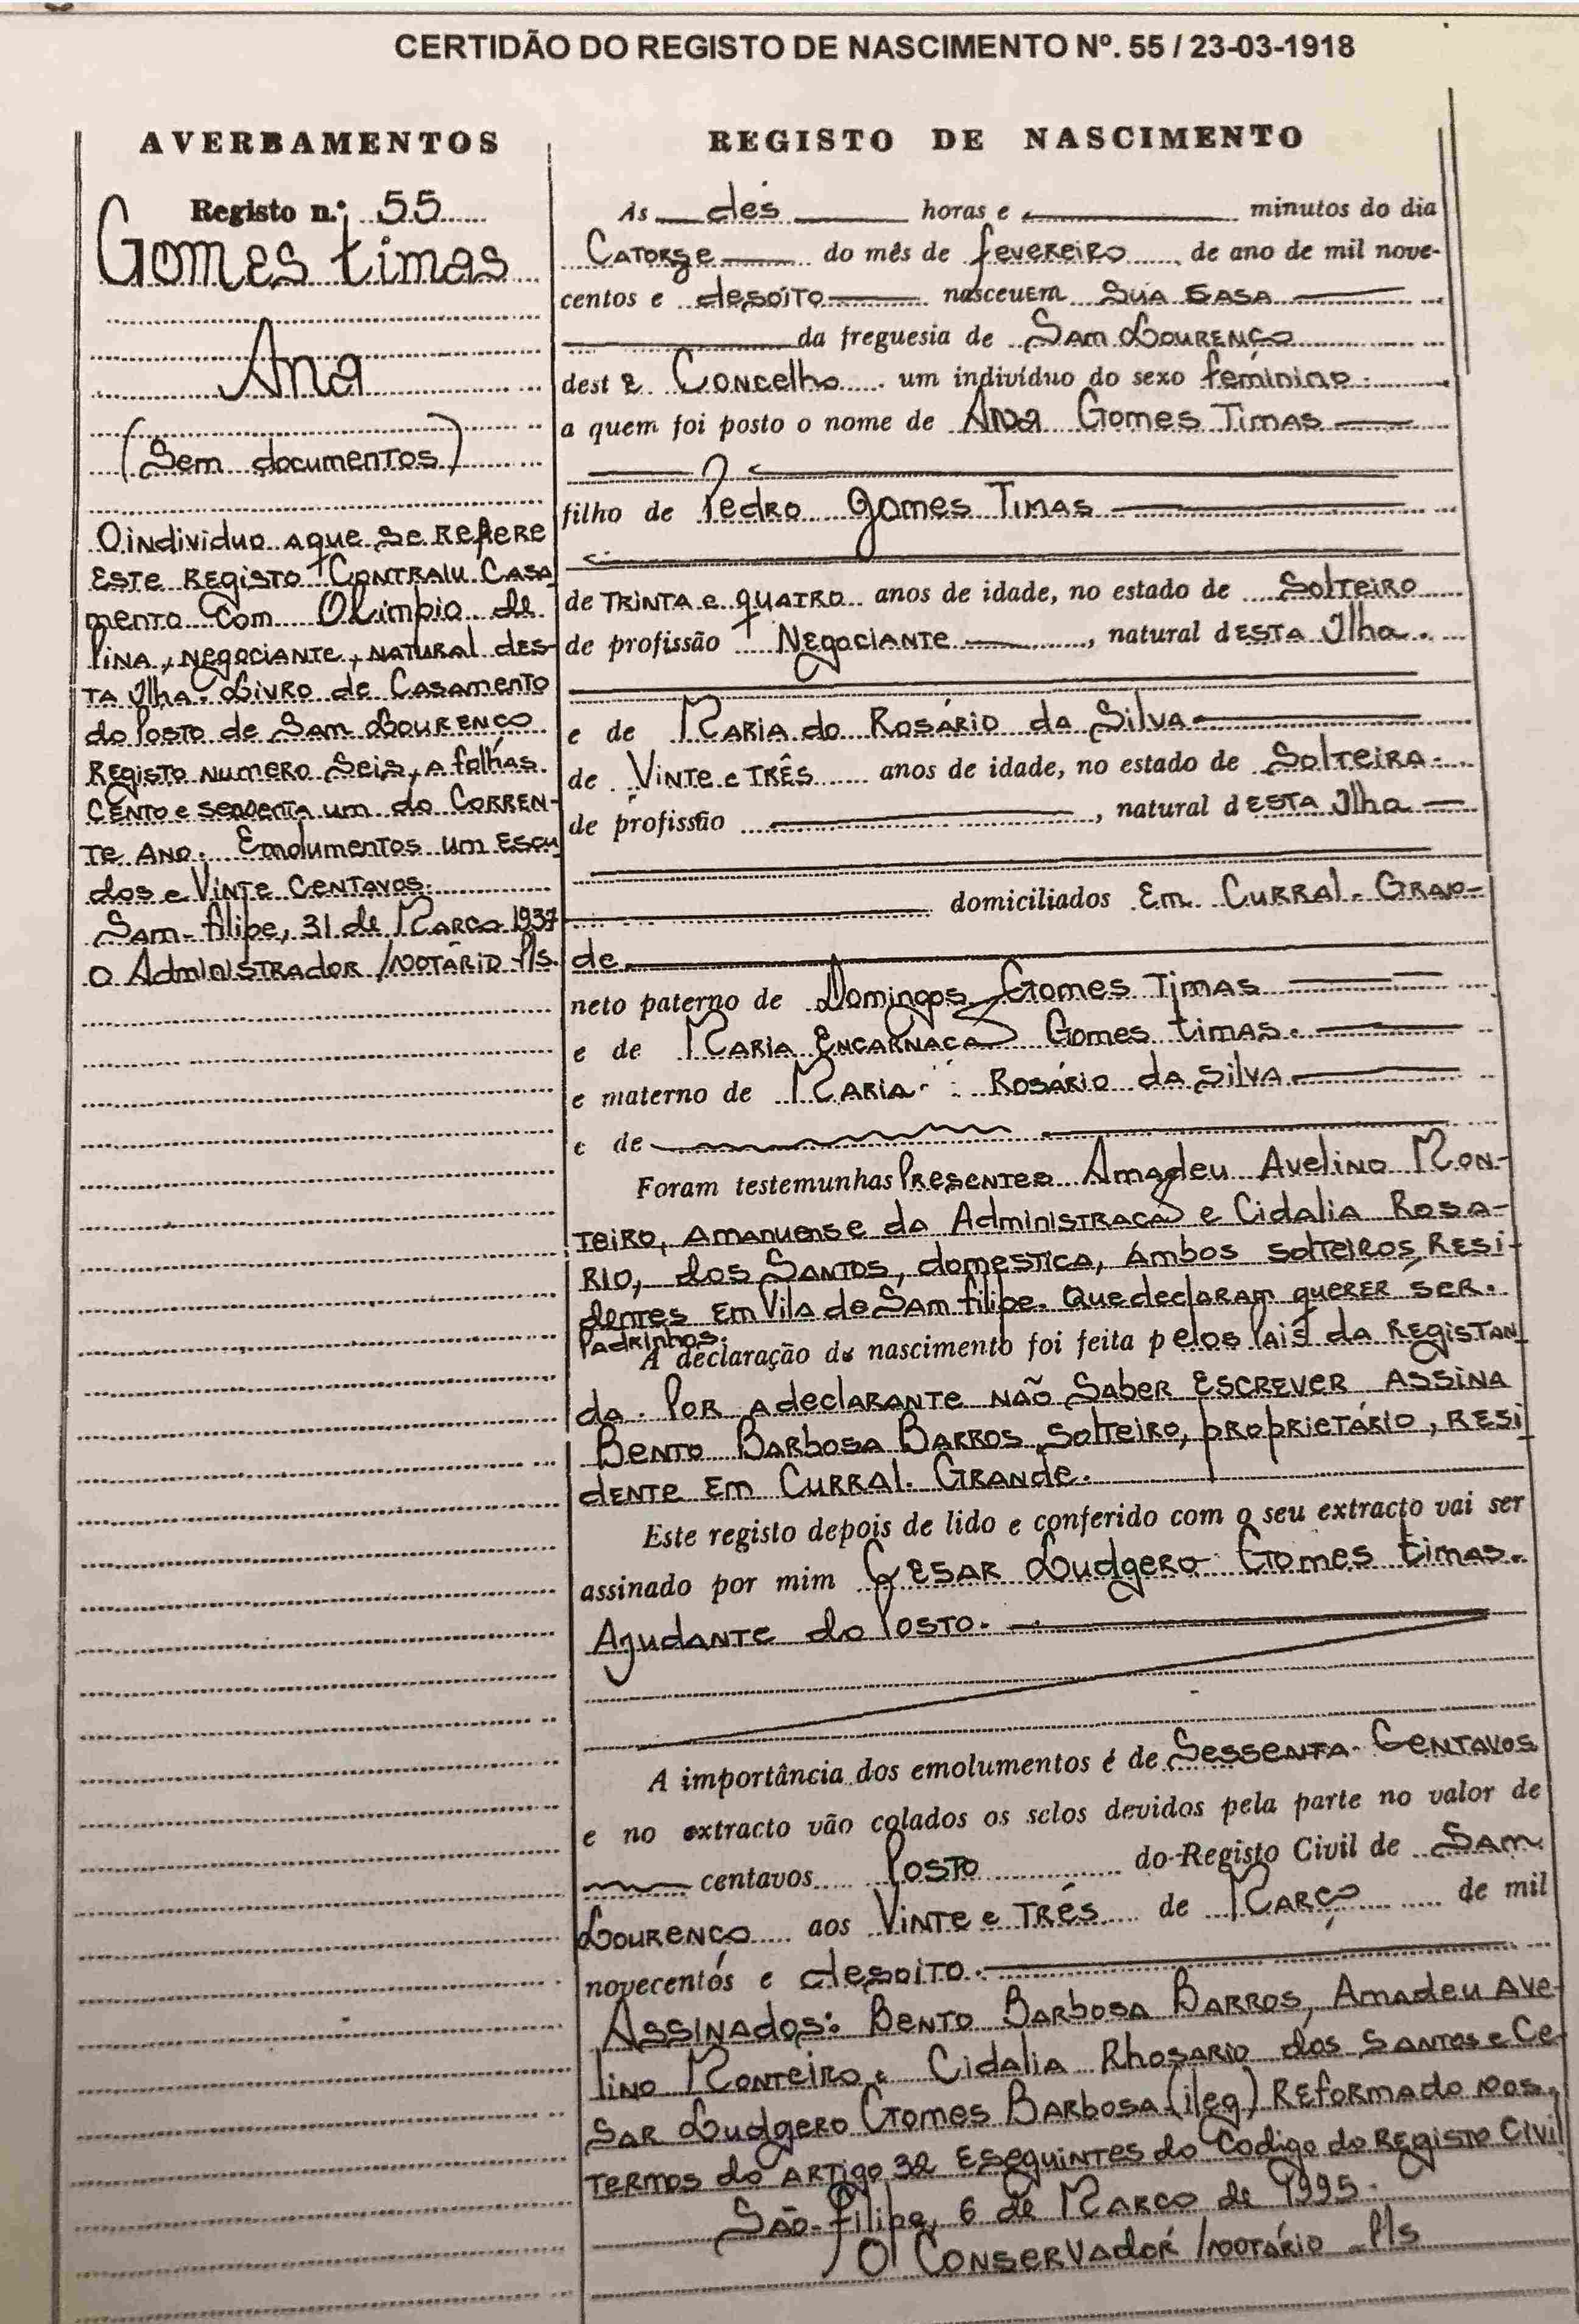 CERTIDÃO DO REGISTO DE NASCIMENTO Nº. 55 / 23-03-1918
AVERBAMENTOS
Registo n.º 55
Gomes timas
Ana
(Sem documentos)
O individuo a que se Refere
Este Registo Contraiu Casa
mento Com Olimpio de
Pina, negociante, natural des-
ta Ilha. Livro de Casamento
do Posto de Sam Lourenço
Registo numero Seis, a folhas
Cento e um do Corren-
te Ano. Emolumentos um Escu
dos e Vinte Centavos.
Sam-filipe, 31 de Março 1937
O Administrador /Notário P/s.
REGISTO DE NASCIMENTO
Ás dés horas e minutos do dia
Catorze do mês de fevereiro de ano de mil nove-
centos e desoito nasceu em Sua Casa
da freguesia de Sam Lourenço
dest e Concelho um indivíduo do sexo feminino.
a quem foi posto o nome de Ana Gomes Timas
filho de Pedro Gomes Timas
de Trinta e quatro anos de idade, no estado de Solteiro
de profissão Negociante, natural desta Ilha.
e de Maria do Rosário da Silva
de Vinte e Três anos de idade, no estado de Solteira.
de profissão , natural desta Ilha
domiciliados Em Curral-Gran-
de
neto paterno de Domingos Gomes Timas
e de Maria Encarnaçaõ Gomes timas.
e materno de Maria Rosário da Silva
e de
Foram testemunhas Presentes Amadeu Avelino Mon-
teiro, Amanuense da Administraçaõ e Cidalia Rosa-
rio, dos Santos, domestica, ámbos solteiros, Resi-
dentes Em Vila de Sam filipe. Que declaram querer ser.
Padrinhos.
A declaração de nascimento foi feita pelos Pais da Registan
da. Por a declarante não Saber Escrever Assina
Bento Barbosa Barros, Solteiro, proprietário, resi
dente em Curral-Grande.
Este registo depois de lido e conferido com o seu extracto vai ser
assinado por mim Cesar Ludgero Gomes timas.
Ajudante do Posto.
A importância dos emolumentos é de Sessenta Centavos
e no extracto vão colados os selos devidos pela parte no valor de
centavos Posto do Registo Civil de Sam
Lourenço aos Vinte e Três de Março de mil
novecentos e desoito.
Assinados: Bento Barbosa Barros, Amadeu Ave-
lino Monteiro e Cidalia Rhosario dos Santos e Ce-
sar Ludgero Gomes Barbosa (ileg) Reformado nos
termos do Artigo 32 e seguintes do Codigo do Registo Civil
São-Filipe, 6 de Março de 1995.
O Conservador /Notário P/s